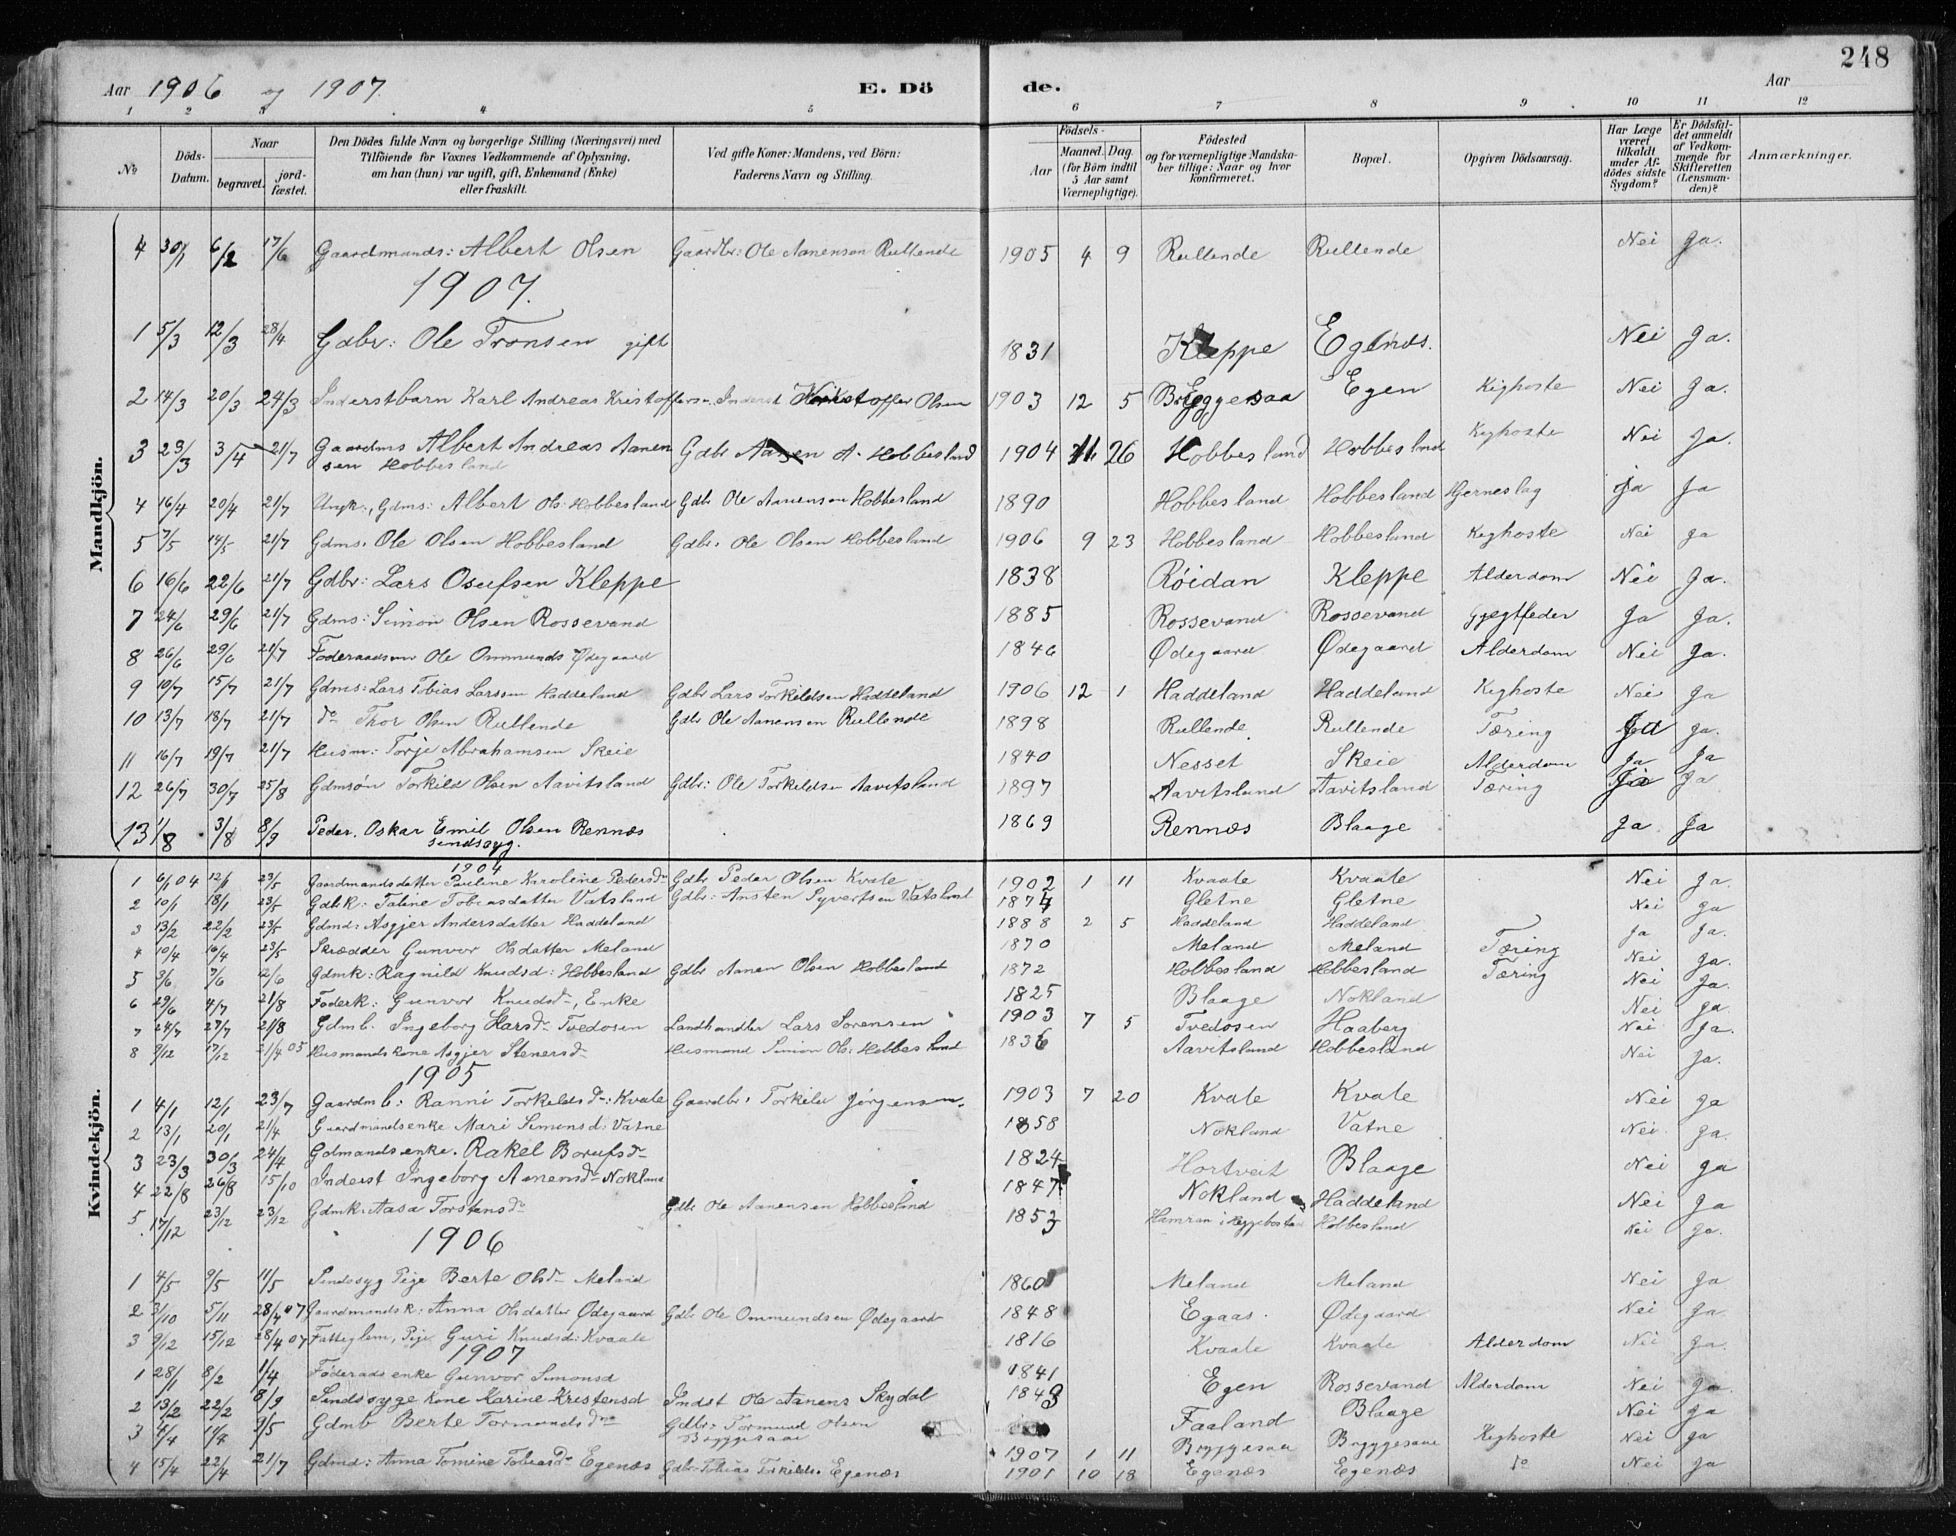 248
Aar 1906 og 1907. E. Dö de. Aar
1 2 3 4 5 6 7 8 9 10 11 12
№ Döds-Datum. Naar begravet. jord-fæstet. Den Dödes fulde Navn og borgerlige Stilling (Næringsvei) med Tilföiende for Voxnes Vedkommende af Oplysning, om han (hun) var ugift, gift, Enkemand (Enke) eller fraskilt. Ved gifte Koner: Mandens, ved Börn: Faderens Navn og Stilling. Födsels- Aar Maaned. Dag. (for Börn indtil 5 Aar samt Værnepligtige). Födested og for værnepligtige Mandska-ber tillige: Naar og hvor konfirmeret. Bopæl. Opgiven Dödsaarsag. Har Læge været tilkaldt under Af-dödes sidste Sygdom? Er Dödsfal-det anmeldt af Vedkom-mende for Skifteretten (Lensman-den)? Anmærkninger.
Mandkjön.
4 30/1 6/2 17/6 Gaardmands: Albert Olsen Gaardbr: Ole Aanensen Rullende 1905 4 9 Rullende Rullende Nei Ja.
1907.
1 5/3 12/3 28/4 Gdbr: Ole Tronsen gift 1831 Kleppe Egenæs. Nei Ja.
2 14/3 20/3 24/3 Inderstbarn Karl Andreas Kristoffersn. Inderst Kristoffer Olsen 1903 12 5 Bryggesaa Egen Kighoste Nei Ja.
3 23/3 3/4 21/7 Gaardms Albert Andreas Aanen
sen Hobbesland Gdbr Aanen A. Hobbesland 1904 11 26 Hobbesland Hobbesland Kighoste Nei Ja.
4 16/4 20/4 21/7 Ungk., Gdms: Albert Ols: Hobbesland Gdbr Ole Aanensen Hobbesland 1890 Hobbesland Hobbesland Hjerneslag Ja Ja
5 7/5 14/5 21/7 Gdms. Ole Olsen Hobbesland Gdbr. Ole Olsen Hobbesland 1906 9 23 Hobbesland Hobbesland Kighoste Nei Ja
6 16/6 22/6 21/7 Gdbr: Lars Osufsen Kleppe 1838 Röidan Kleppe Alderdom Nei Ja.
7 24/6 29/6 21/7 Gdms: Simon Olsen Rossevand 1885 Rossevand Rossevand Ja Ja.
8 26/6 29/6 21/7 Foderaadsm Ole Ommunds Ødegaard 1846 Ødegaard Ødegaard Alderdom Nei Ja.
9 10/7 15/7 21/7 Gdms: Lars Tobias Larssen Haddeland Gdbr Lars Torkildsen Haddeland 1906 12 1 Haddeland Haddeland Kighoste Nei Ja
10 13/7 18/7 21/7 do Thor Olsen Rullende Gdbr Ole Aanensen Rullende 1898 Rullende. Rullende Tæring Ja Ja.
11 16/7 19/7 21/7 Husm: Torje Abrahamsen Skeie 1840 Nesset Skeie Alderdom Ja Ja
12 26/7 30/7 25/8 Gdmsøn Torkild Olsen Aavitsland Gdbr: Ole Torkildsen Aavitsland 1897 Aavitsland Aavitsland Tæring Ja Ja
13 1/8 3/8 8/9 Peder. Oskar Emil Olsen Rennæs
sindssyg. 1869 Rennæs Blaage Ja Ja
Kvindekjön.
1904
1 6/1 04 12/1 23/5 Gaardmandsdatter Pauline Karoline Pedersdr Gdbr Peder Olsen Kvale 1902 1 11 Kvaale Kvaale Nei Ja.
2 10/1 18/1 23/5 Gdbrk: Talene Tobiasdatter Vatsland Gdbr: Ansten Syvertsen Vatsland 1874 Gletne Gletne Nei Ja
3 13/2 22/2 23/5 Gdmd: Asgjer Andersdatter Haddeland 1888 2 5 Haddeland Haddeland Ja Ja.
4 10/4 16/4 23/5 Skrædder Gunvor Olsdatter Meland 1870 Meland Meland Tæring Nei Ja.
5 3/6 7/6 12/6 Gdmk: Ragnild Knudsd: Hobbesland Gdbr Aanen Olsen Hobbesland 1872 Hobbesland Hobbesland Tæring Nei Ja.
6 29/6 4/7 21/8 Foderk: Gunvor Knudsdr, Enke 1825 Blaage Nokland Nei Ja.
7 24/7 27/7 21/8 Gdmb. Ingeborg Larsdr Tvedosen Landhandler Lars Sorensen 1903 7 5 Tvedosen Haaberg Nei Ja.
8 9/12 17/12 21/4 05 Husmandskone Asgjer Stenersdr Husmand Simon Ols: Hobbesland 1836 Aavitsland Hobbesland Nei Ja.
1905
1 4/1 12/1 23/7 Gaardmb: Ranni Torkeldsdr: Kvale Gaardbr. Torkild Jørgensen. 1903 7 20 Kvale Kvale Nei Ja
2 13/1 20/1 21/4 Gaardmandsenke Mari Simonsd: Vatne 1858 Nokland Vatne Nei. Ja.
3 23/3 30/3 24/4 Gdmandsenke. Rakel Borufsdr 1824 Hortveit Blaage Nei Ja
4 22/8 26/8 15/10 Inderst Ingeborg Aanensdr Nokland 1847 Nokland Haddeland Nei Ja
5 17/12 23/12 23/12 Gdmk: Aasa Torstensdr Gdbr Ole Aanensen Hobbesland 1853 Hamran i Heggebostad Hobbesland Nei Ja.
1906
1 4/5 9/5 11/5 Sindssyg Pige Berte Olsdr Meland 1860 Meland Meland Nei Ja
2 31/10 5/11 28/4 07 Gaardmandsk: Anna Olsdatter Ødegaard Gdbr Ole Ommundsen Ødegaard 1848 Egaas. Ødegaard Nei Ja
3 9/12 15/12 28/4 07 Fattiglem, Pige Guri Knudsd: Kvaale 1816 Kvaale Kvaale Alderdom Nei Ja.
1907
1 28/1 8/2 1/4 Føderadsenke Gunvor Simonsd 1841 Egen Rossevand Alderdom Nei Ja
2 13/2 22/2 8/9 Sindssyge kone Karine Kristensd Indst Ole Aanens Skydal 1843 Faaland Blaage Nei Ja
3 4/4 11/4 9/5 Gdmb Berte Tormundsdr Gdbr: Tormund Olsen
Bryggesaae 1907 1 11 Bryggesaa Bryggesaae Kighoste Nei Ja
4 15/4 22/4 21/7 Gdmd: Anna Tomine Tobiasdr Egenæs Gdbr Tobias Torkilds. Egenæs 1901 10 18 Egenæs Egenæs do Nei Ja